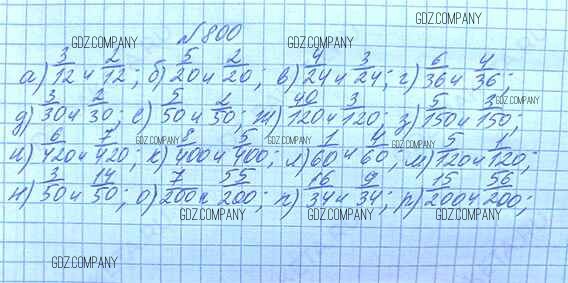 GDZ.COMPANY
№ 800
GDZ.COMPANY GDZ.COMPANY
а) 3/12 и 2/12; б) 5/20 и 2/20; в) 4/24 и 3/24; г) 6/36 и 4/36;
GDZ.COMPANY
д) 3/30 и 2/30; е) 5/50 и 2/50; ж) 40/120 и 3/120; з) 5/150 и 3/150;
GDZ.COMPANY GDZ.COMPANY GDZ.COMPANY
и) 6/420 и 7/420; к) 8/400 и 5/400; л) 1/60 и 4/60; м) 5/120 и 1/120;
н) 3/50 и 14/50; о) 7/200 и 55/200; п) 16/34 и 9/34; р) 15/200 и 56/200;
GDZ.COMPANY GDZ.COMPANY GDZ.COMPANY
GDZ.COMPANY